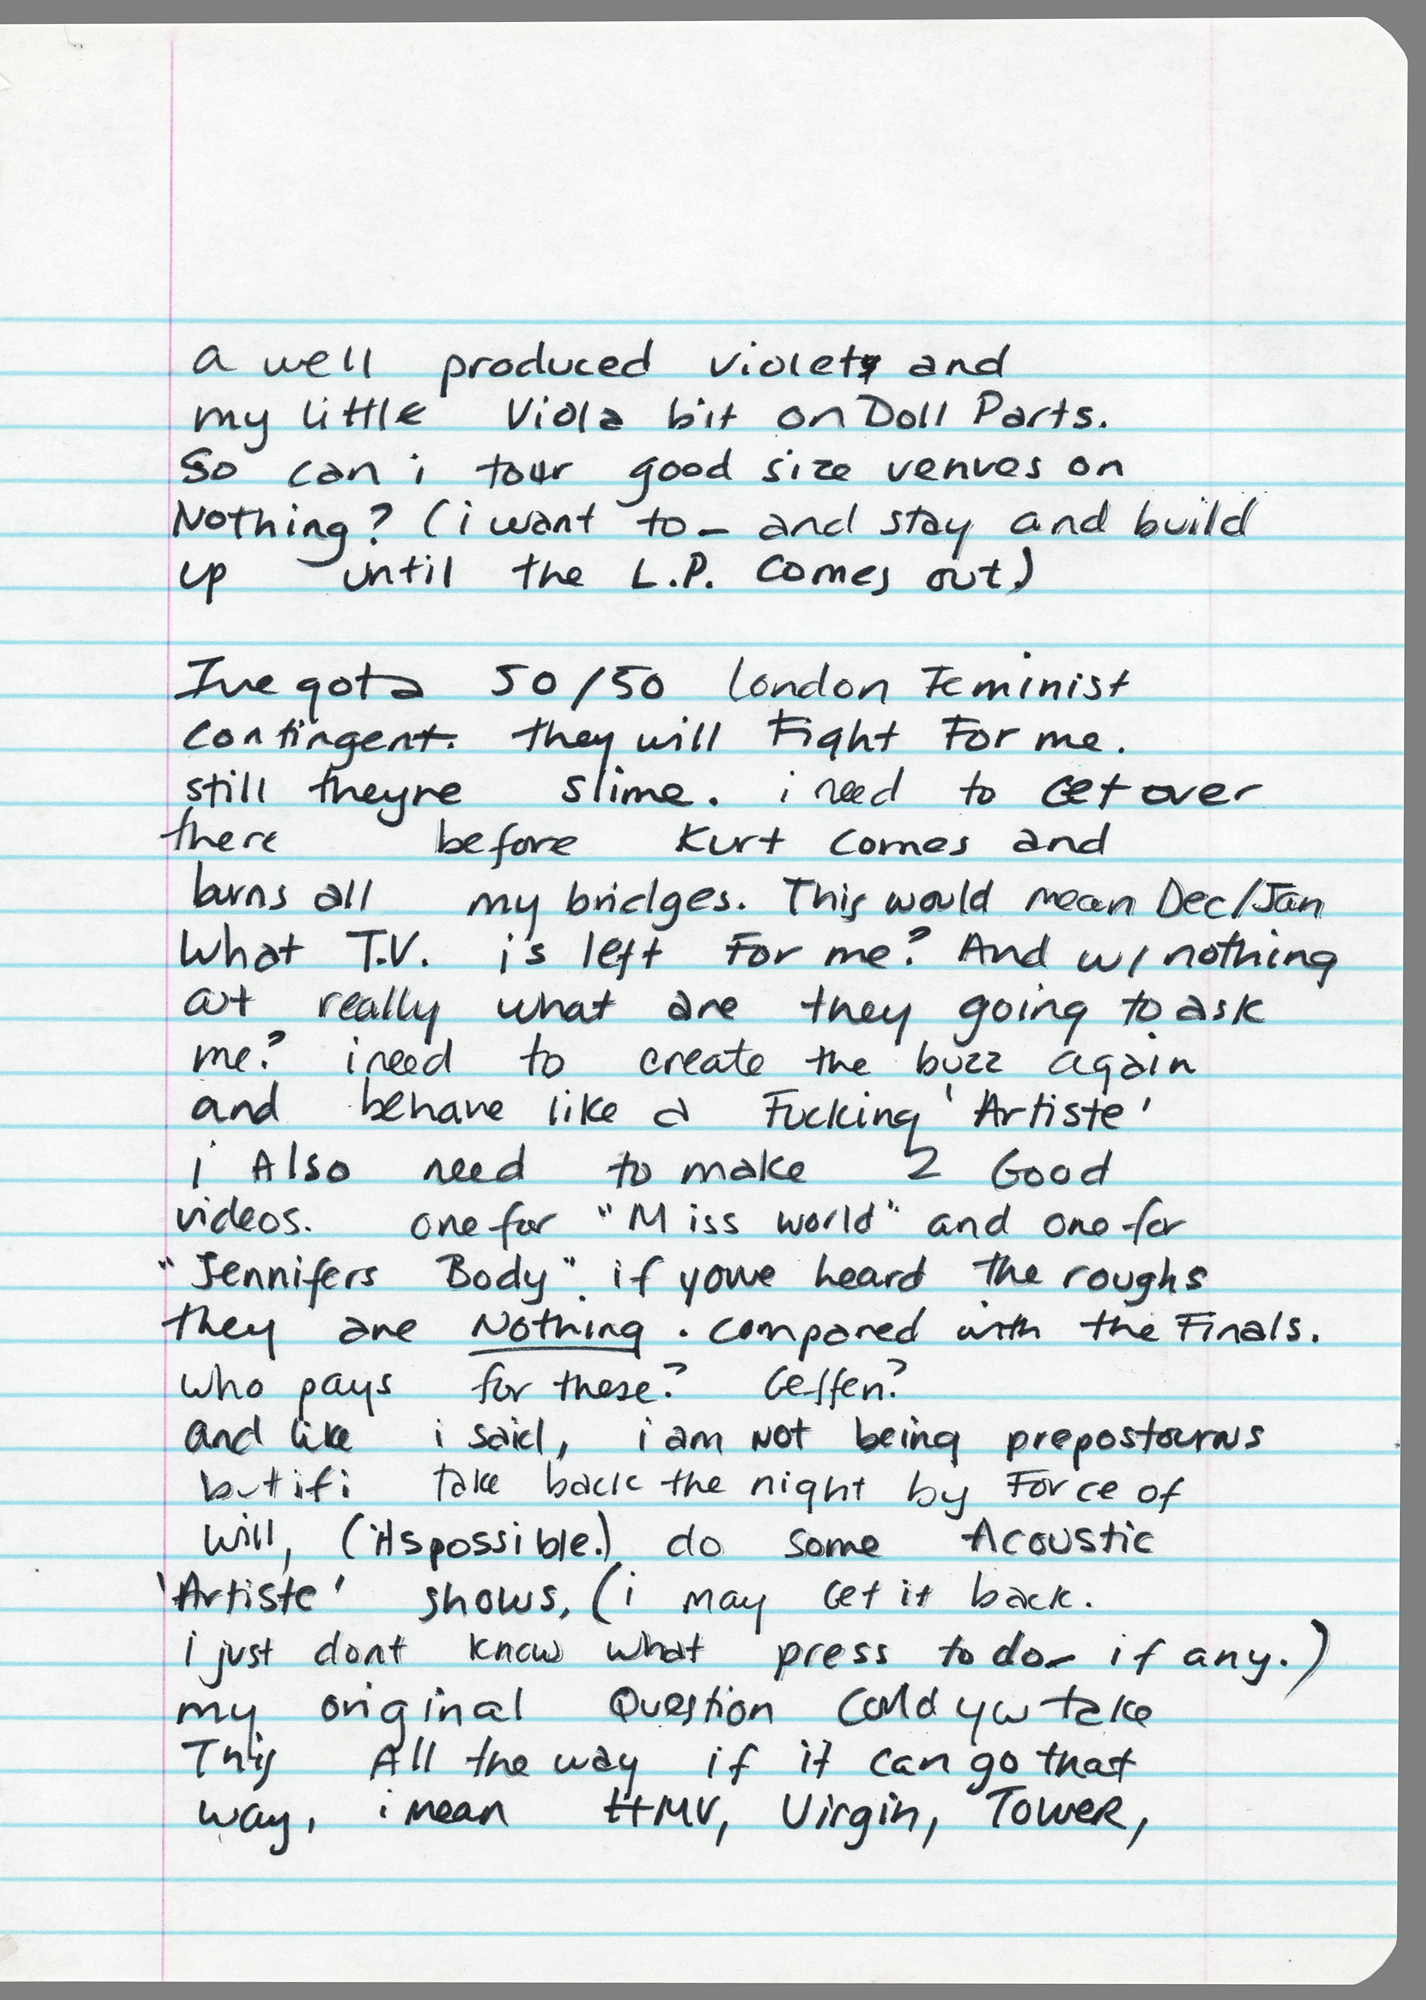 a well produced violet and
my little Viola bit on Doll Parts.
So can i tour good size venues on
Nothing? (i want to - and stay and build
up until the L.P. comes out)
Ive gota 50/50 london Feminist
contingent. they will Fight For me.
still theyre slime. i need to Get over
there before Kurt comes and
burns all my bridges. This would mean Dec/Jan
What T.V. is left For me? And w/ nothing
out really what are they going to ask
me? i need to create the buzz again
and behave like a Fucking 'Artiste'
i Also need to make 2 Good
videos. one for "Miss world" and one for
"Jennifers Body". if youve heard the roughs
they are Nothing. compared with the Finals.
who pays for these? Geffen?
and like i said, i am NOT being prepostourus
but if i take back the night by Force of
will, (its possible.) do some Acoustic
'Artiste' shows, (i may Get it back.
i just dont know what press to do - if any.)
my original Question Could you take
This All the way if it can go that
way, i mean HMV, Virgin, TOWER,